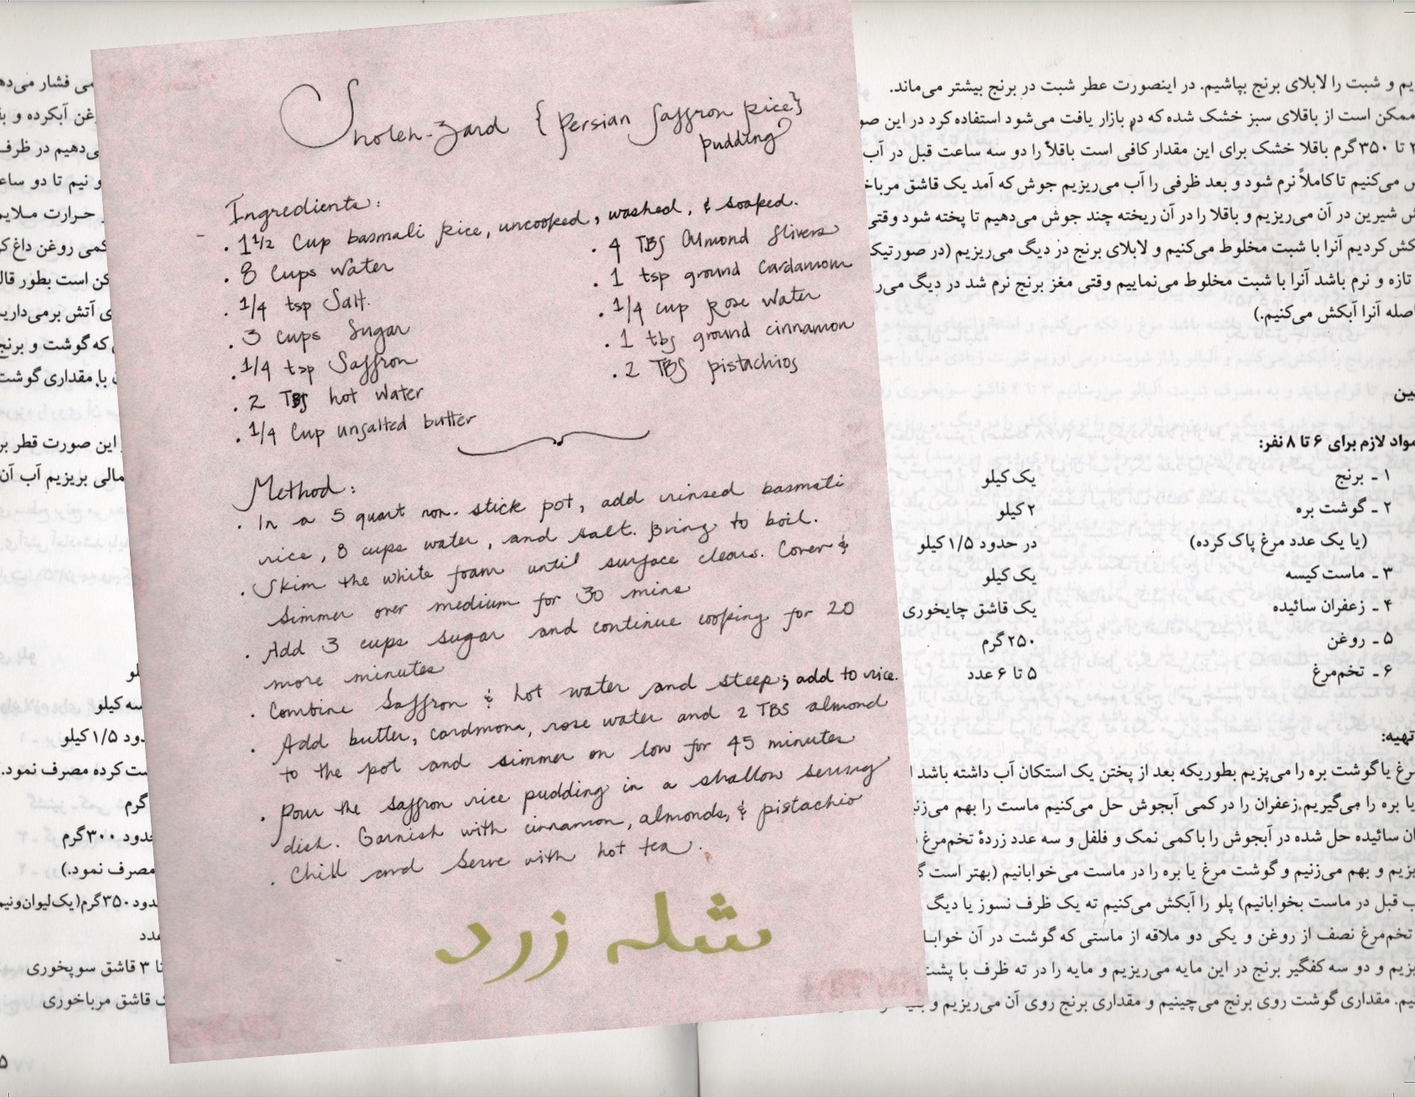 Sholeh-Zard {Persian Saffron Rice}
pudding
Ingredients:
· 1 1/2 Cup basmati rice, uncooked, washed, & soaped.
· 8 Cups Water
· 1/4 tsp Salt.
· 3 cups Sugar
· 1/4 tsp Saffron
· 2 TBS hot Water
· 1/4 Cup unsalted butter
· 4 TBS Almond Slivers
· 1 tsp ground Cardamom
· 1/4 cup Rose Water
· 1 tbs ground cinnamon
· 2 TBS pistachios
Method:
· In a 5 quart non-stick pot, add rinsed basmati
rice, 8 cups water, and salt. Bring to boil.
· Skim the white foam until surface clears. Cover &
simmer over medium for 30 mins
· Add 3 cups sugar and continue cooking for 20
more minutes
· Combine Saffron & hot water and steep; add to rice.
· Add butter, cardmona, rose water and 2 TBS almond
to the pot and simmer on low for 45 minutes
· Pour the saffron rice pudding in a shallow serving
dish. Garnish with cinnamon, almonds, & pistachio
· Chill and serve with hot tea.
شله زرد
یم و شبت را لابلای برنج بپاشیم. در اینصورت عطر شبت در برنج بیشتر می‌ماند.
ممکن است از باقلای سبز خشک شده که در بازار یافت می‌شود استفاده کرد در این صو
تا ۳۵۰ گرم باقلا خشک برای این مقدار کافی است باقلا را دو سه ساعت قبل در آب
می‌کنیم تا کاملاً نرم شود و بعد ظرفی را آب می‌ریزیم جوش که آمد یک قاشق مرباخ
ش شیرین در آن می‌ریزیم و باقلا را در آن ریخته چند جوش می‌دهیم تا پخته شود وقتی
کش کردیم آنرا با شبت مخلوط می‌کنیم و لابلای برنج در دیگ می‌ریزیم (در صورتیک
تازه و نرم باشد آنرا با شبت مخلوط می‌نماییم وقتی مغز برنج نرم شد در دیگ می‌ر
اصله آنرا آبکش می‌کنیم.)
چین
مواد لازم برای ۶ تا ۸ نفر:
۱ ـ برنج یک کیلو
۲ ـ گوشت بره ۲ کیلو
(یا یک عدد مرغ پاک کرده) در حدود ۱/۵ کیلو
۳ ـ ماست کیسه یک کیلو
۴ ـ زعفران سائیده یک قاشق چایخوری
۵ ـ روغن ۲۵۰ گرم
۶ ـ تخم‌مرغ ۵ تا ۶ عدد
تهیه:
مرغ یا گوشت بره را می‌پزیم بطوریکه بعد از پختن یک استکان آب داشته باشد
یا بره را می‌گیریم، زعفران را در کمی آبجوش حل می‌کنیم ماست را بهم می‌زن
ان سائیده حل شده در آبجوش را با کمی نمک و فلفل و سه عدد زردهٔ تخم‌مرغ
یزیم و بهم می‌زنیم و گوشت مرغ یا بره را در ماست می‌خوابانیم (بهتر است گ
ب قبل در ماست بخوابانیم) پلو را آبکش می‌کنیم ته یک ظرف نسوز یا دیگ
تخم‌مرغ نصف از روغن و یکی دو ملاقه از ماستی که گوشت در آن خوابا
یزیم و دو سه کفگیر برنج در این مایه می‌ریزیم و مایه را در ته ظرف با پشت
یم. مقداری گوشت روی برنج می‌چینیم و مقداری برنج روی آن می‌ریزیم و
می فشار می‌ده
غن آبکرده و بق
ی‌دهیم در ظرف
و نیم تا دو ساع
حرارت ملایم
کمی روغن داغ ک
کن است بطور قال
ی آتش برمی‌داریم
که گوشت و برنج
با مقداری گوشت
این صورت قطر بر
مالی بریزیم آب آن
لو
سه کیلو
دود ۱/۵ کیلو
ست کرده مصرف نمود.
گرم
حدود ۳۰۰ گرم
مصرف نمود.)
حدود ۳۵۰ گرم (یک لیوان و نیم
عدد
تا ۳ قاشق سوپخوری
ک قاشق مرباخوری